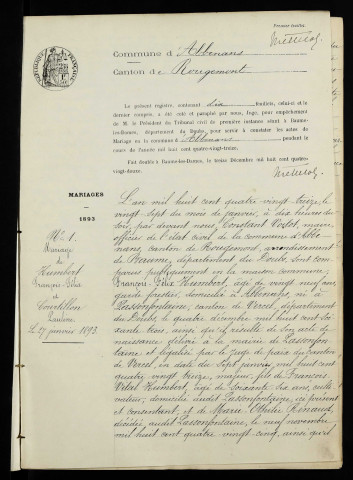 Premier feuillet.
Commune d'Abbenans
Canton de Rougemont
Le présent registre, contenant dix feuillets, celui-ci et le
dernier compris, a été coté et paraphé par nous, Juge, pour empêchement
de M. le Président du Tribunal civil de première instance séant à Baume-
les-Dames, département du Doubs, pour servir à constater les actes de
Mariage de la commune d'Abbenans pendant le
cours de l'année mil huit cent quatre-vingt-treize.
Fait double à Baume-les-Dames, le treize Décembre mil huit cent
quatre-vingt-douze.
MARIAGES
1893
N° 1.
Mariage
de
Humbert
François-Félix
et
Courtillon
Pauline
Le 27 janvier 1893.
L'an mil huit cent quatre vingt treize, le
vingt sept du mois de janvier, à dix heures du
soir, par devant nous, Constant Verlot, maire,
officier de l'état civil de la commune d'Abbe-
nans, canton de Rougemont, arrondissement
de Baume, département du Doubs, sont com-
parus publiquement en la maison commune;
François-Félix Humbert, âgé de vingt neuf ans,
garde forestier, domicilié à Abbenans, né à
Passonfontaine, canton de Vercel, département
du Doubs, le quatre décembre mil huit cent soi-
xante trois, ainsi qu'il résulte de son acte de
naissance délivré à la mairie de Passonfon-
taine et légalisé par le juge de paix du canton
de Vercel, en date du sept janvier, mil huit cent
quatre vingt treize, majeur, fils de François
Vital Humbert, âgé de soixante six ans, culti-
vateur, domicilié audit Passonfontaine, ici présent
et consentant, et de Marie Renaud,
décédée audit Passonfontaine, le neuf novembre
mil huit cent quatre vingt cinq, ainsi qu'il